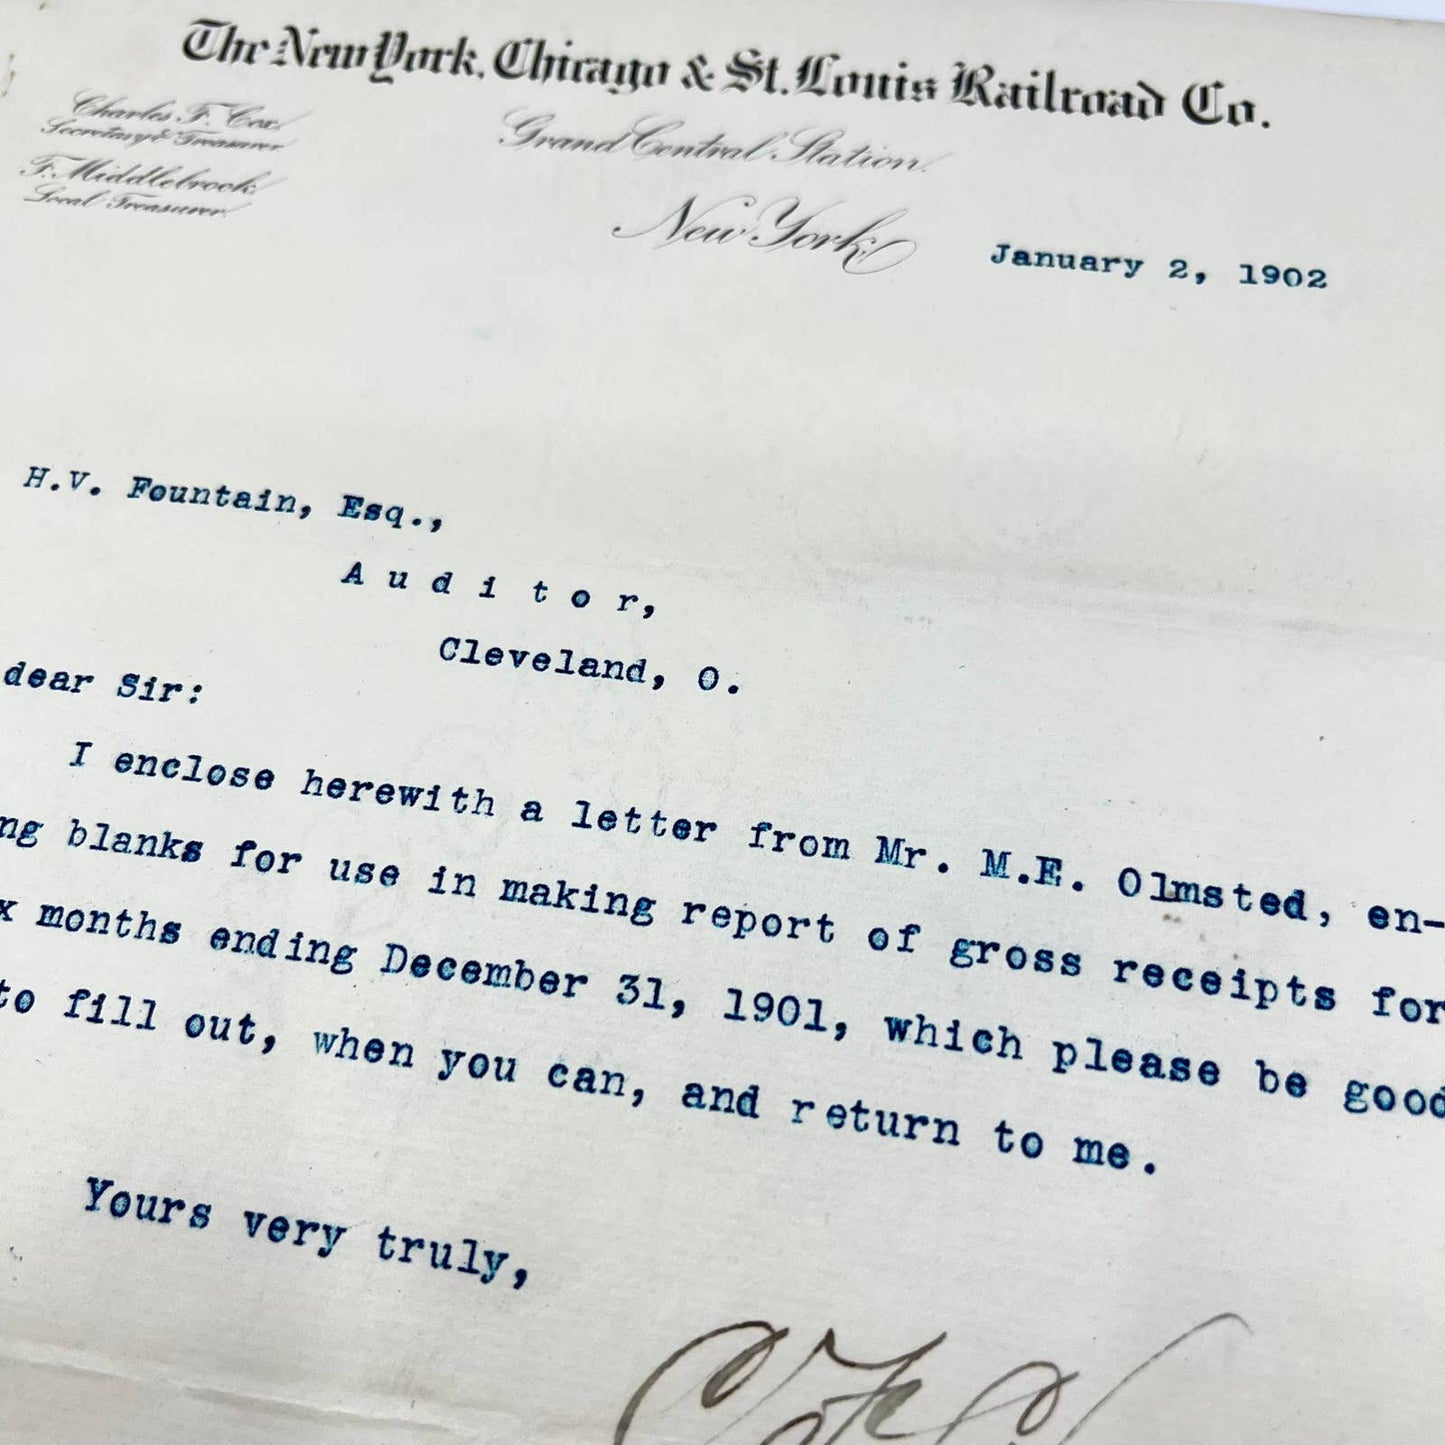 The New York, Chicago & St. Louis Railroad Co.
Charles F. Cox,
Secretary & Treasurer
F. Middlebrook,
Local Treasurer.
Grand Central Station.
New York,
January 2, 1902
H.V. Fountain, Esq.,
A u d i t o r,
Cleveland, O.
dear Sir:
I enclose herewith a letter from Mr. M.E. Olmsted, en-
ng blanks for use in making report of gross receipts for
x months ending December 31, 1901, which please be good
to fill out, when you can, and return to me.
Yours very truly,